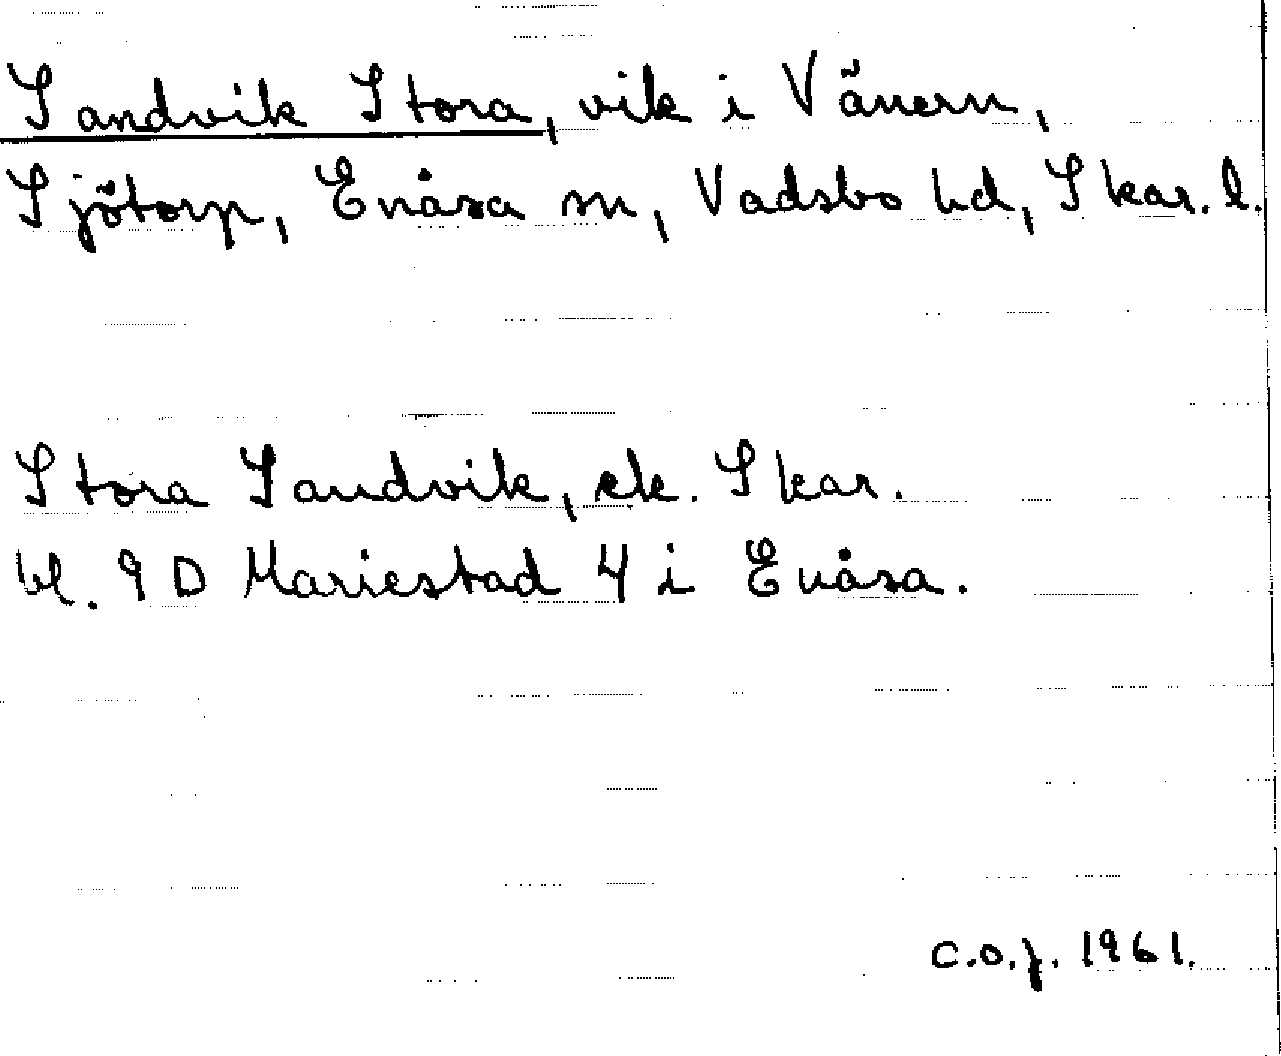 Sandvik Stora, vik i Vänern,
Sjötorp, Enåsa sn, Vadsbo hd, Skar. l.
Stora Sandvik, ek. Skar.
bl. 9 D Mariestad 4 i Enåsa.
C.O.J. 1961.